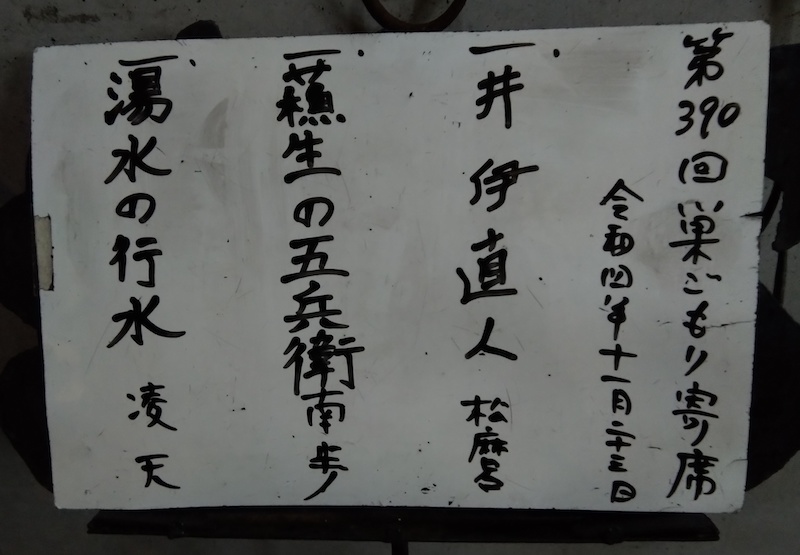 第390回 巣ごもり寄席
令和四年十一月二十三日
一、井伊直人 松麿
一、蘓生の五兵衛 南歩
一、湯水の行水 凌天